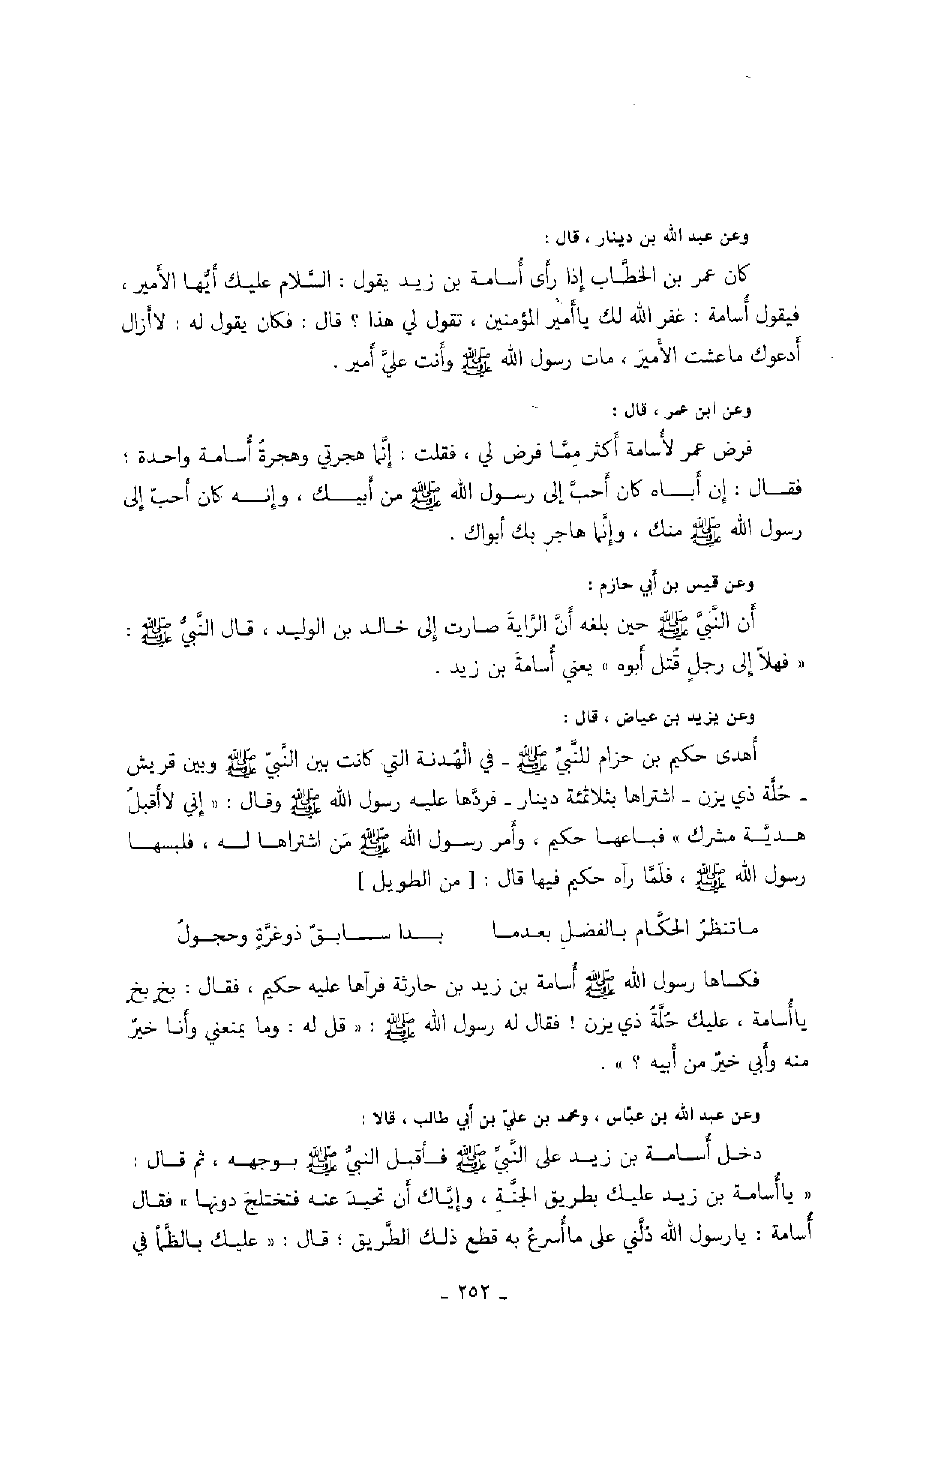 وعن عبد الله بن دينار ، قال :
كان عمر بن الخطَّاب إذا رأى أُسامة بن زيد يقول : السَّلام عليك أيُّها الأمير ،
فيقول أُسامة : غفر الله لك ياأمير المؤمنين ، تقول لي هذا ؟ قال : فكان يقول له : لاأزال
أدعوك ماعشت الأميرَ ، مات رسول الله ﷺ وأنت عليَّ أمير .
وعن ابن عمر ، قال :
فرض عمر لأُسامة أكثر ممَّا فرض لي ، فقلت : إنَّما هجرتي وهجرةُ أُسامة واحدة ؛
فقال : إن أباه كان أحبَّ إلى رسول الله ﷺ من أبيك ، وإنه كان أحبّ إلى
رسول الله ﷺ منك ، وإنَّما هاجر بك أبواك .
وعن قيس بن أبي حازم :
أن النَّبيَّ ﷺ حين بلغه أنَّ الرَّايةَ صارت إلى خالد بن الوليد ، قال النَّبيُّ ﷺ :
« فهلاّ إلى رجلٍ قُتل أبوه » يعني أُسامةَ بن زيد .
وعن يزيد بن عياض ، قال :
أهدى حكيم بن حزام للنَّبيِّ ﷺ ـ في الْهُدنة التي كانت بين النَّبيّ ﷺ وبين قريش
ـ حُلَّة ذي يزن ـ اشتراها بثلاثمئة دينار ـ فردَّها عليه رسول الله ﷺ وقال : « إني لاأقبلُ
هديَّة مشرك » فباعها حكيم ، وأمر رسول الله ﷺ مَن اشتراها له ، فلبسها
رسول الله ﷺ ، فلَمَّا رآه حكيم فيها قال : [ من الطويل ]
ماتنظرُ الحكَّام بالفضلِ بعدما بدا سابقٌ ذو غرَّةٍ وحجولُ
فكساها رسول الله ﷺ أُسامة بن زيد بن حارثة فرآها عليه حكيم ، فقال : بخٍ بخٍ
ياأُسامة ، عليك حُلَّةُ ذي يزن ! فقال له رسول الله ﷺ : « قل له : وما يمنعني وأنا خيرٌ
منه وأبي خيرٌ من أبيه ؟ » .
وعن عبد الله بن عبَّاس ، ومحمد بن عليّ بن أبي طالب ، قالا :
دخل أُسامة بن زيد على النَّبيِّ ﷺ فأقبل النبيُّ ﷺ بوجهه ، ثم قال :
« ياأُسامة بن زيد عليك بطريق الجنَّة ، وإيَّاك أن تحيدَ عنه فتختلج دونها » فقال
أُسامة : يارسول الله دُلَّني على ماأسرعُ به قطع ذلك الطَّريق ؛ قال : « عليك بالظَّمأ في
ـ ٢٥٢ ـ